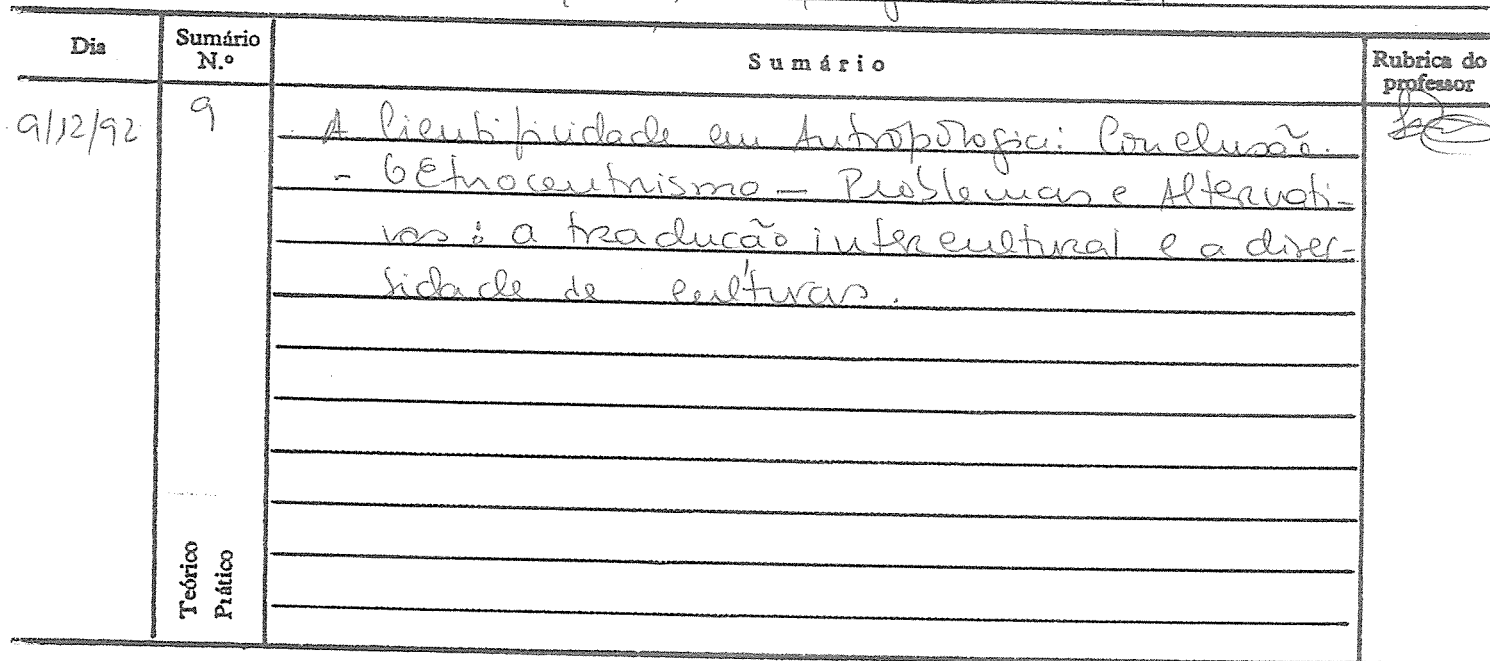 Dia
Sumário N.º
Sumário
Rubrica do professor
9/12/92
9
A Cientificidade em Antropologia: Conclusão.
- O Etnocentrismo - Problemas e Alternati-
vas: a tradução intercultural e a diver-
sidade de culturas.
Teórico
Prático